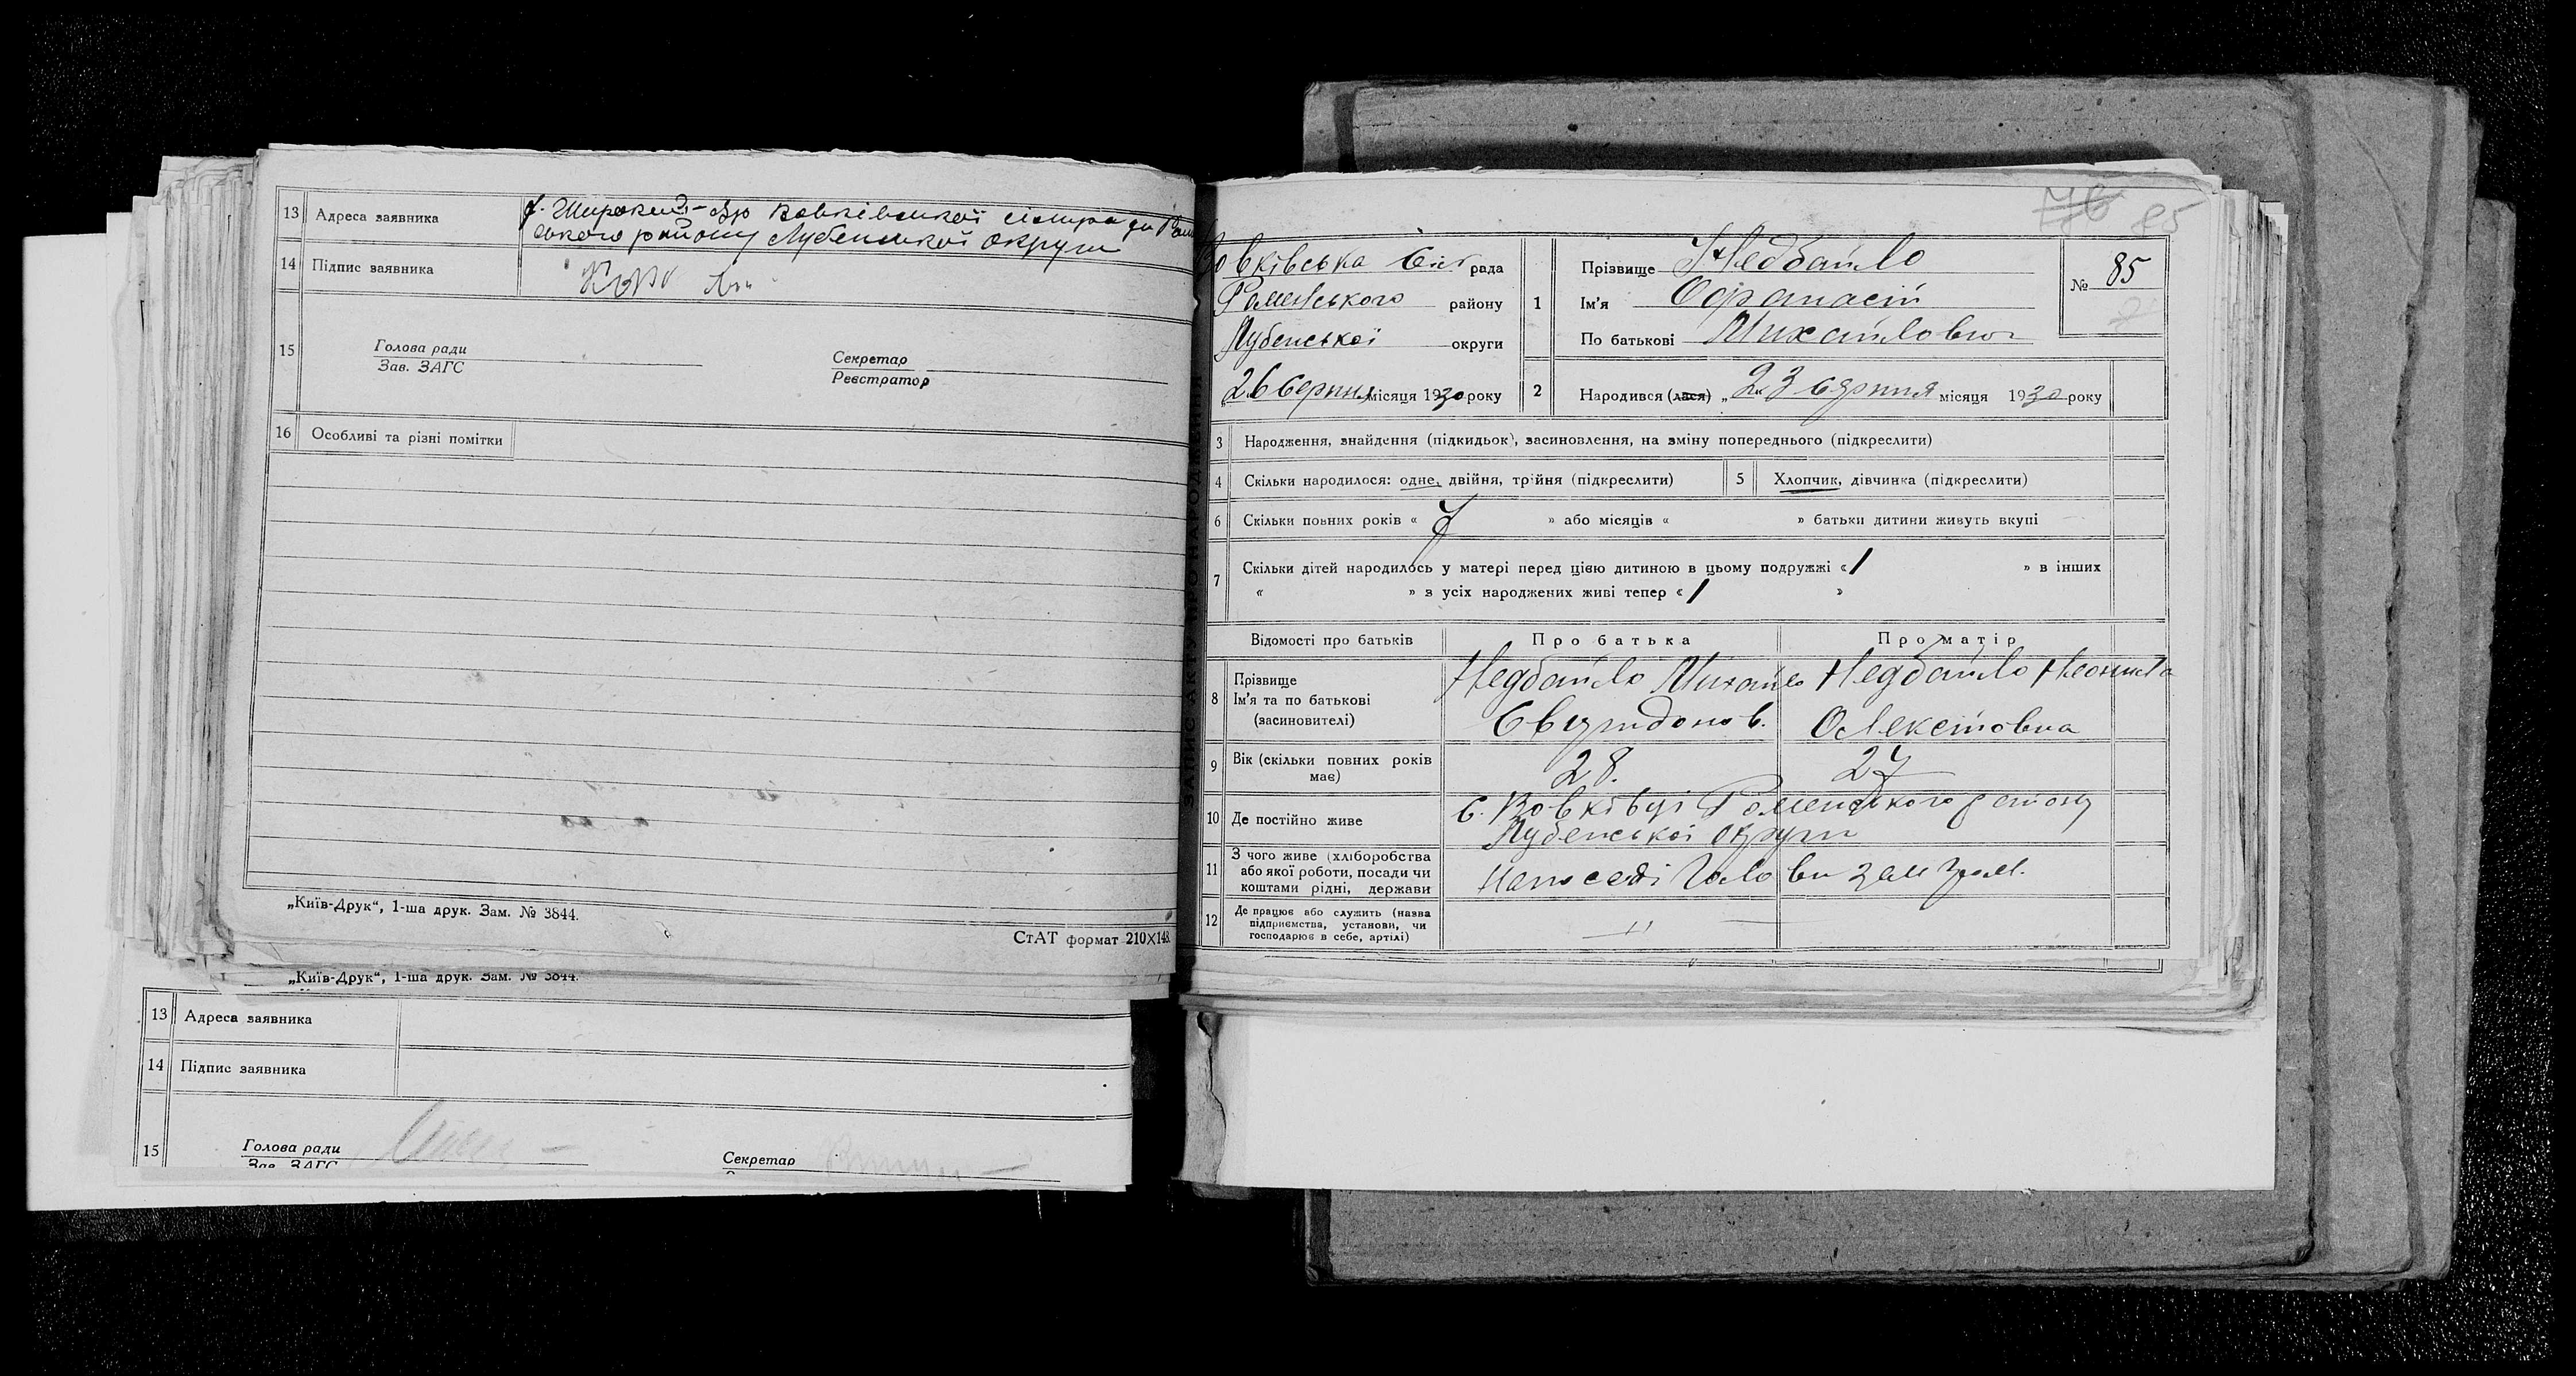 13 Адреса заявника
х. Широкий-Яр Вовківської сільради Ром
ського району Лубенської округи
14 Підпис заявника
15 Голова ради
Зав. ЗАГС
Секретар
Реєстратор
16 Особливі та різні помітки
„Київ-Друк“, 1-ша друк. Зам. № 3844.
СтАТ формат 210×148.
„Київ-Друк“, 1-ша друк. Зам. № 3844.
13 Адреса заявника
14 Підпис заявника
15 Голова ради
Зав. ЗАГС
Секретар
76 85
Вовківська Сіл рада
Роменського району
Лубенської округи
26 Серпня місяця 1930 року
ЗАПИС АКТУ ПРО НАРОДЖЕННЯ
1 Прізвище Недбайло
Ім'я Офанасій
По батькові Михайлович
№ 85
2 Народився (лася) „23“ серпня місяця 1930 року
3 Народження, знайдення (підкидьок), засиновлення, на зміну попереднього (підкреслити)
4 Скільки народилося: одне, двійня, трійня (підкреслити)
5 Хлопчик, дівчинка (підкреслити)
6 Скільки повних років « 7 » або місяців « » батьки дитини живуть вкупі
7 Скільки дітей народилось у матері перед цією дитиною в цьому подружжі « 1 » в інших
« » з усіх народжених живі тепер « 1 »
Відомості про батьків Про батька Про матір
8 Прізвище
Ім'я та по батькові
(засиновителі)
Недбайло Михайло
Свиридонов.
Недбайло Неонила
Олексіовна
9 Вік (скільки повних років
має)
28. 27
10 Де постійно живе
с. Вовківці Роменського району
Лубенської округи
11 З чого живе (хліборобства
або якої роботи, посади чи
коштами рідні, держави
На посаді Голови зем
12 Де працює або служить (назва
підприємства, установи, чи
господарює в себе, артілі)
—〃—